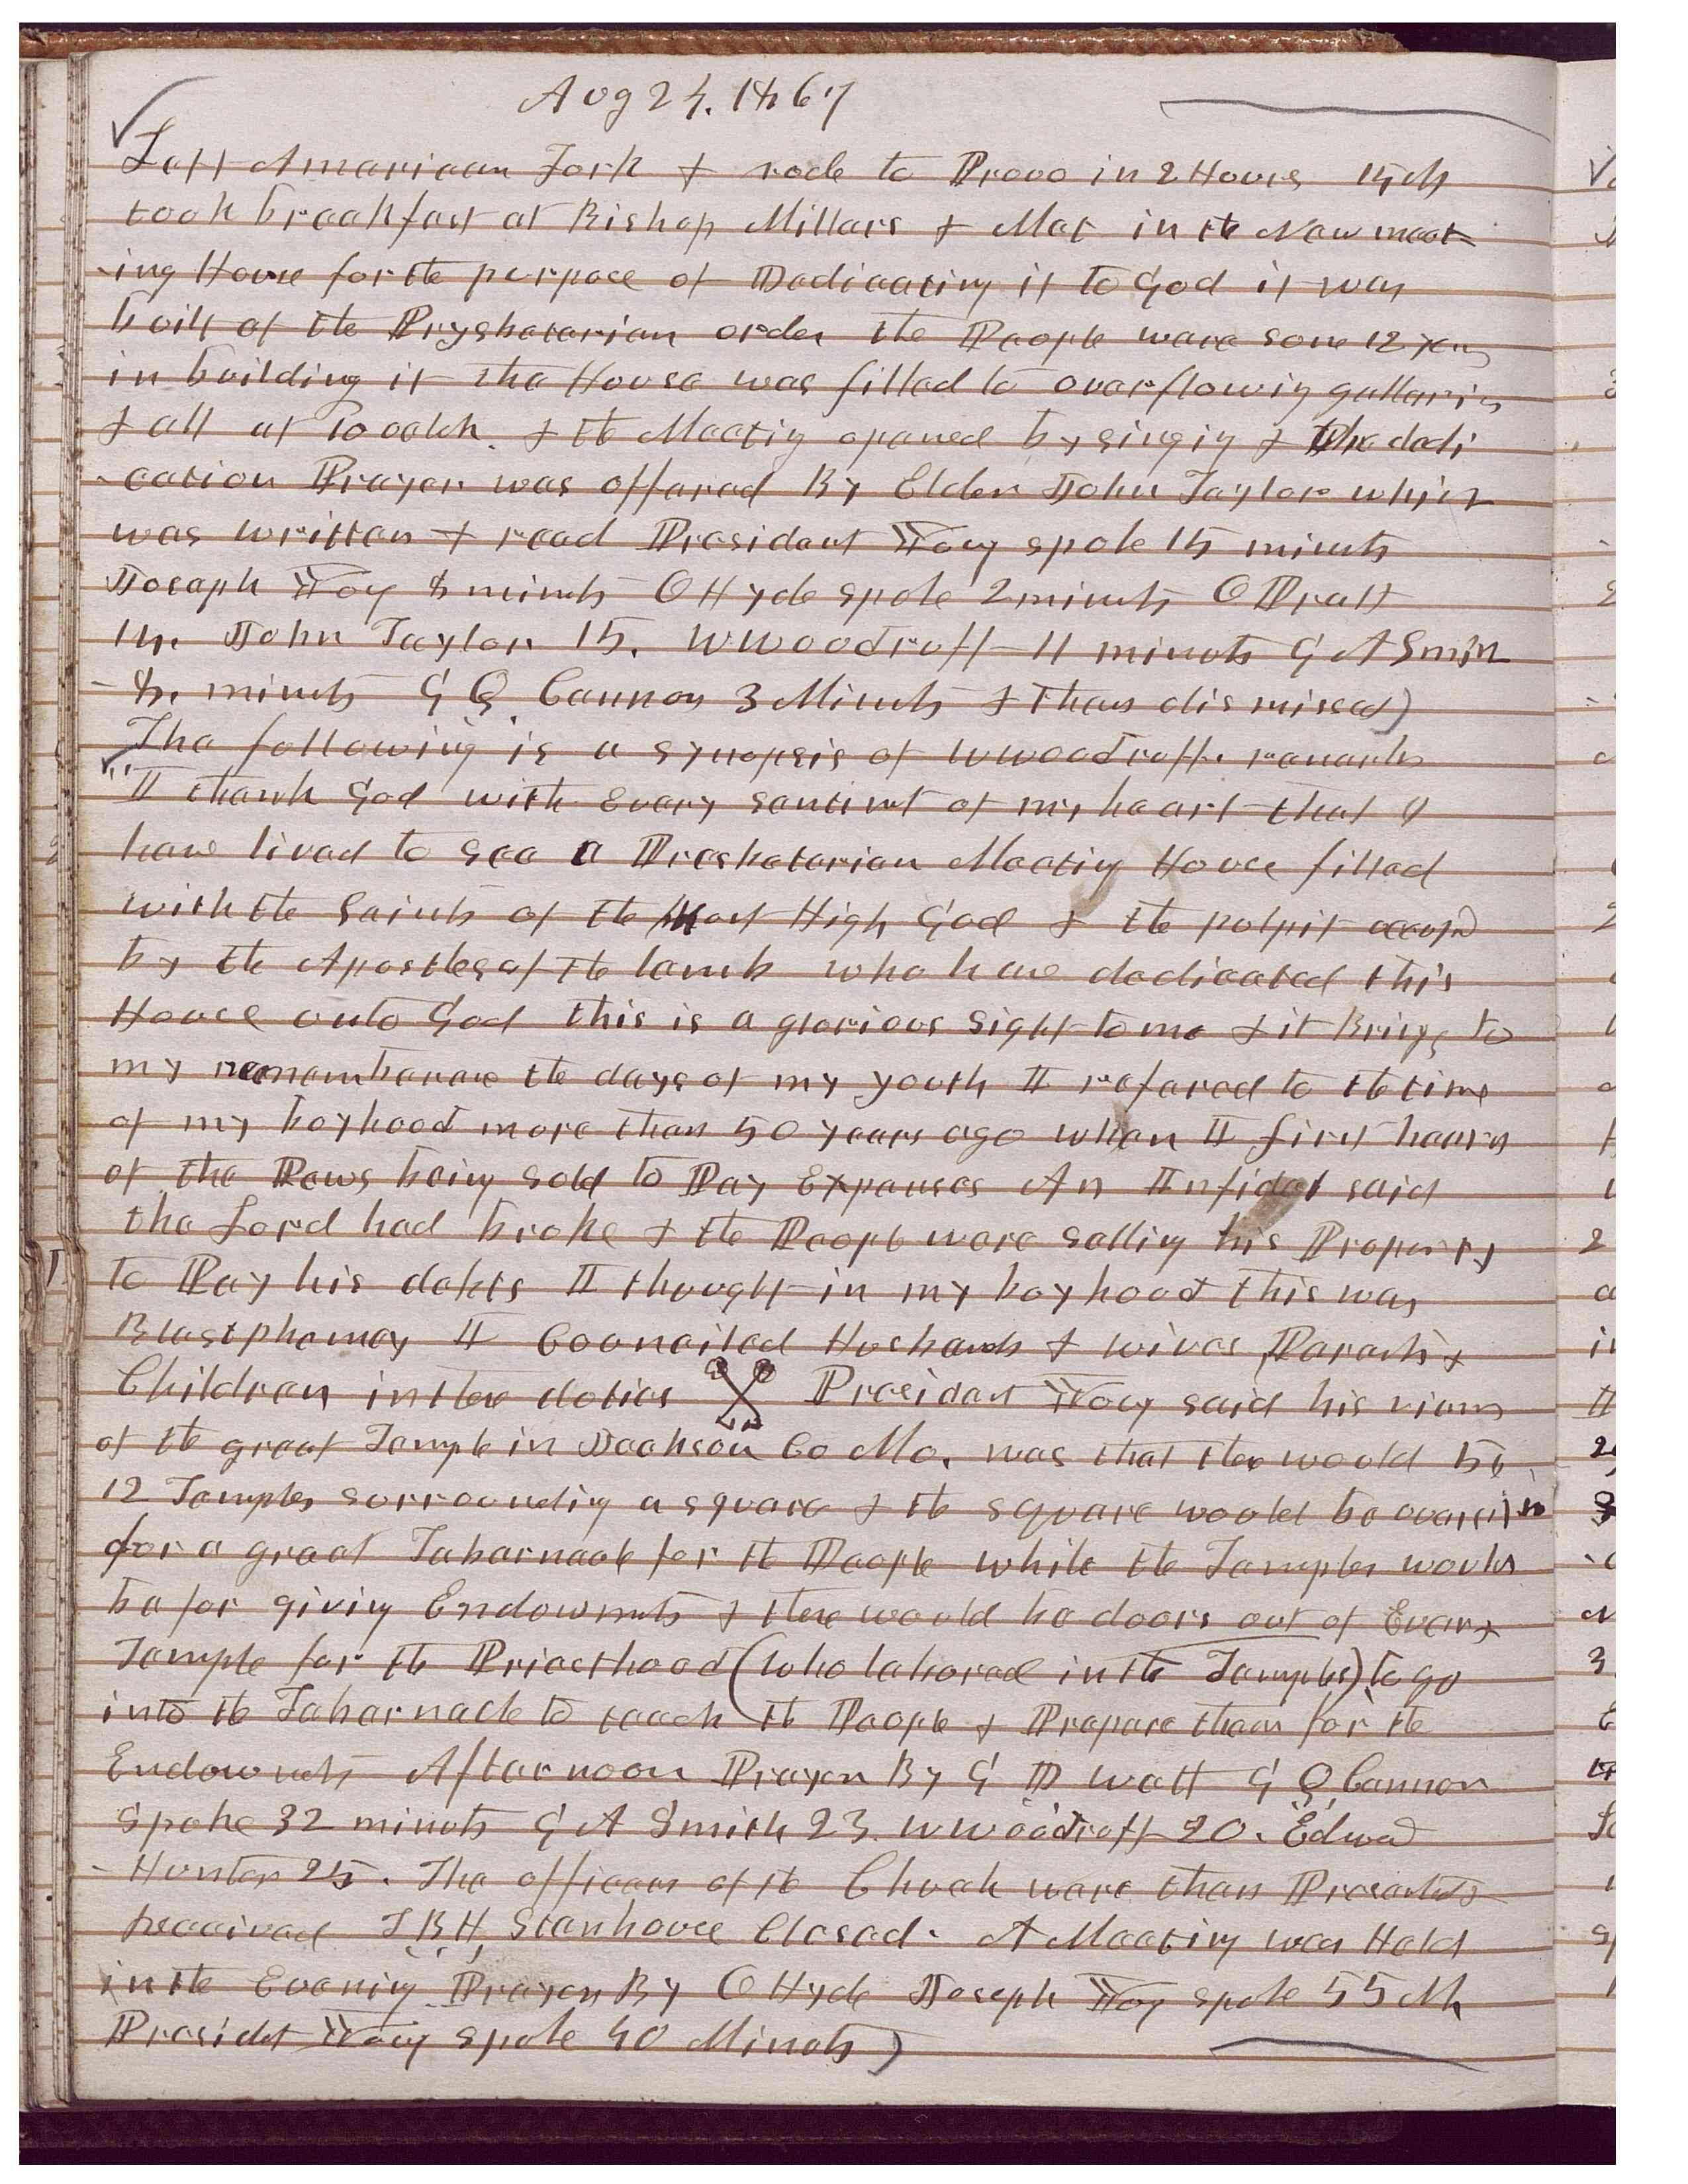 Aug 24, 1867
Left American Fork & rode to Provo in 2 Hours 15 M
took breakfast at Bishop Millers & Met in the New meet-
-ing House for the purpose of Dedicating it to God it was
built of the Prysbeterian order the People were some 12 yers
in building it The House was filled to overflowing galleries
& all at 10 oclok. & the Meeting opened by singing & The dedi
-cation Prayer was offered By Elder John Taylor which
was written & read President Young spoke 15 minuts
Joseph Young 8 minuts O Hyde spoke 2 minuts O Pratt
14. John Taylor 15. W Woodruff 11 minuts G A Smith
8. minuts G Q Cannon 3 Minuts & then dismissed)
The following is a synopsis of W Woodruffs remarks
"I thank God with Every sentimt of my heart that I
have lived to see a Presbeterian Meeting House filled
with the Saints of the Most High God & the pulpit occupd
by the Apostles of the lamb who have dedicated this
House unto God this is a glorious sight to me & it Brings to
my rememberance the days of my youth I refered to the time
of my boyhood more than 50 years ago when I first heard
of the Pews being sold to Pay Expenses An Infidel said
the Lord had broke & the People were selling his Property
to Pay his debts I thought in my boyhood this was
Blastphemey I Counciled Husbands & wives Parents &
Children in their duties President Young said his views
of the great Temple in Jackson Co Mo. was that ther would be
12 Temples surrounding a square & the square would be
for a great Tabernacle for the People while the Temples would
be for giving Endowmts & there would be doors out of Every
Temple for the Priesthood (who labored in the Temples) to go
into the Tabernacle to teach the People & Prepare them for the
Endowmets Afternoon Prayer By G D Watt G Q Cannon
spoke 32 minuts G A Smith 23. W Woodruff 20. Edwad
Hunter 25. The officers of the Church were then Presented &
received T B H Stenhouse Closed. A Meeting was Held
in the Evening Prayer By O Hyde Joseph Young spoke 55 M
Presidet Young spoke 40 Minuts)